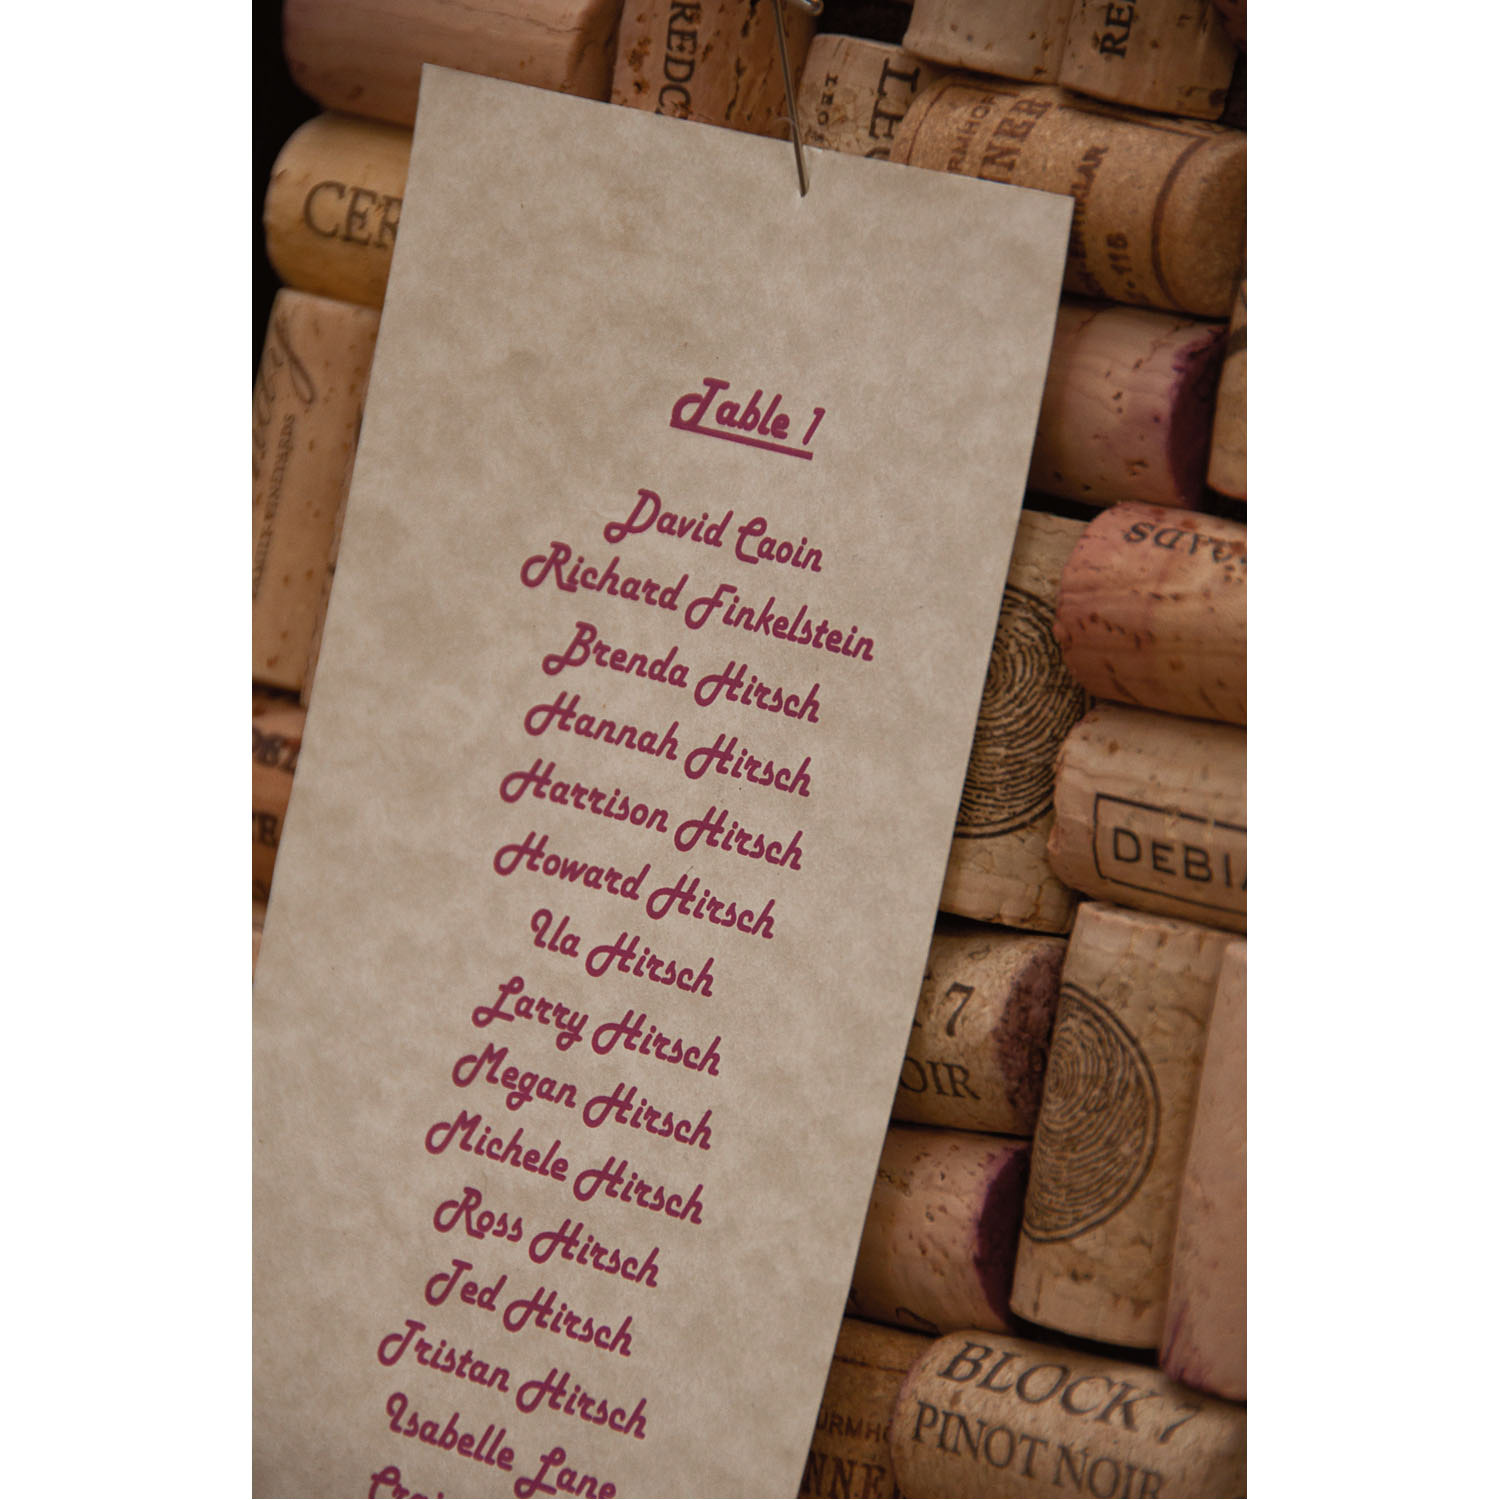 Table 1
David Caoin
Richard Finkelstein
Brenda Hirsch
Hannah Hirsch
Harrison Hirsch
Howard Hirsch
Ila Hirsch
Larry Hirsch
Megan Hirsch
Michele Hirsch
Ross Hirsch
Ted Hirsch
Tristan Hirsch
Isabelle Lane
CER
7
OIR
DEBI
BLOCK 7
PINOT NOIR